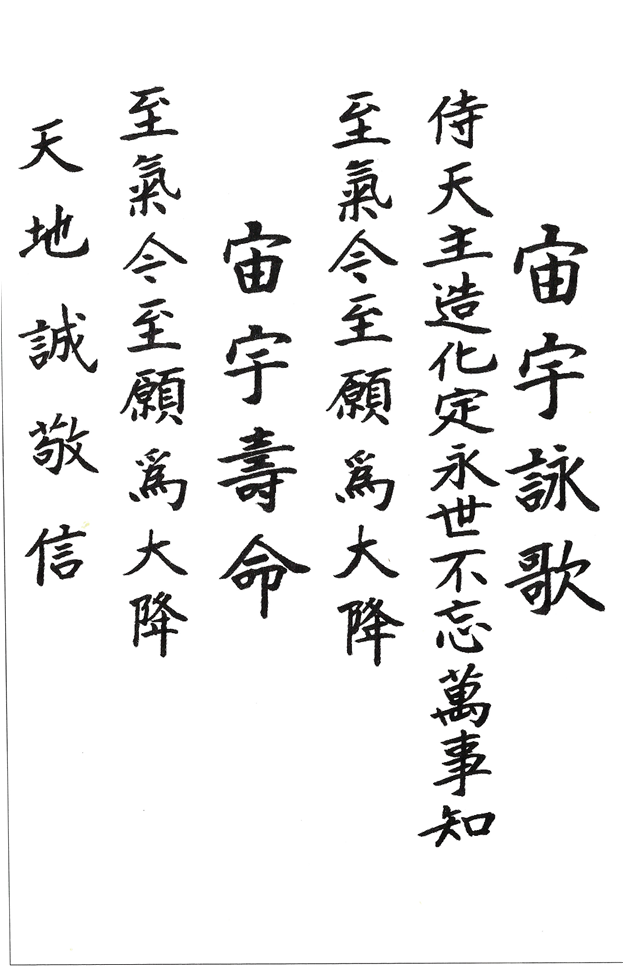 宙宇詠歌
侍天主造化定永世不忘萬事知
至氣今至願爲大降
宙宇壽命
至氣今至願爲大降
天地誠敬信